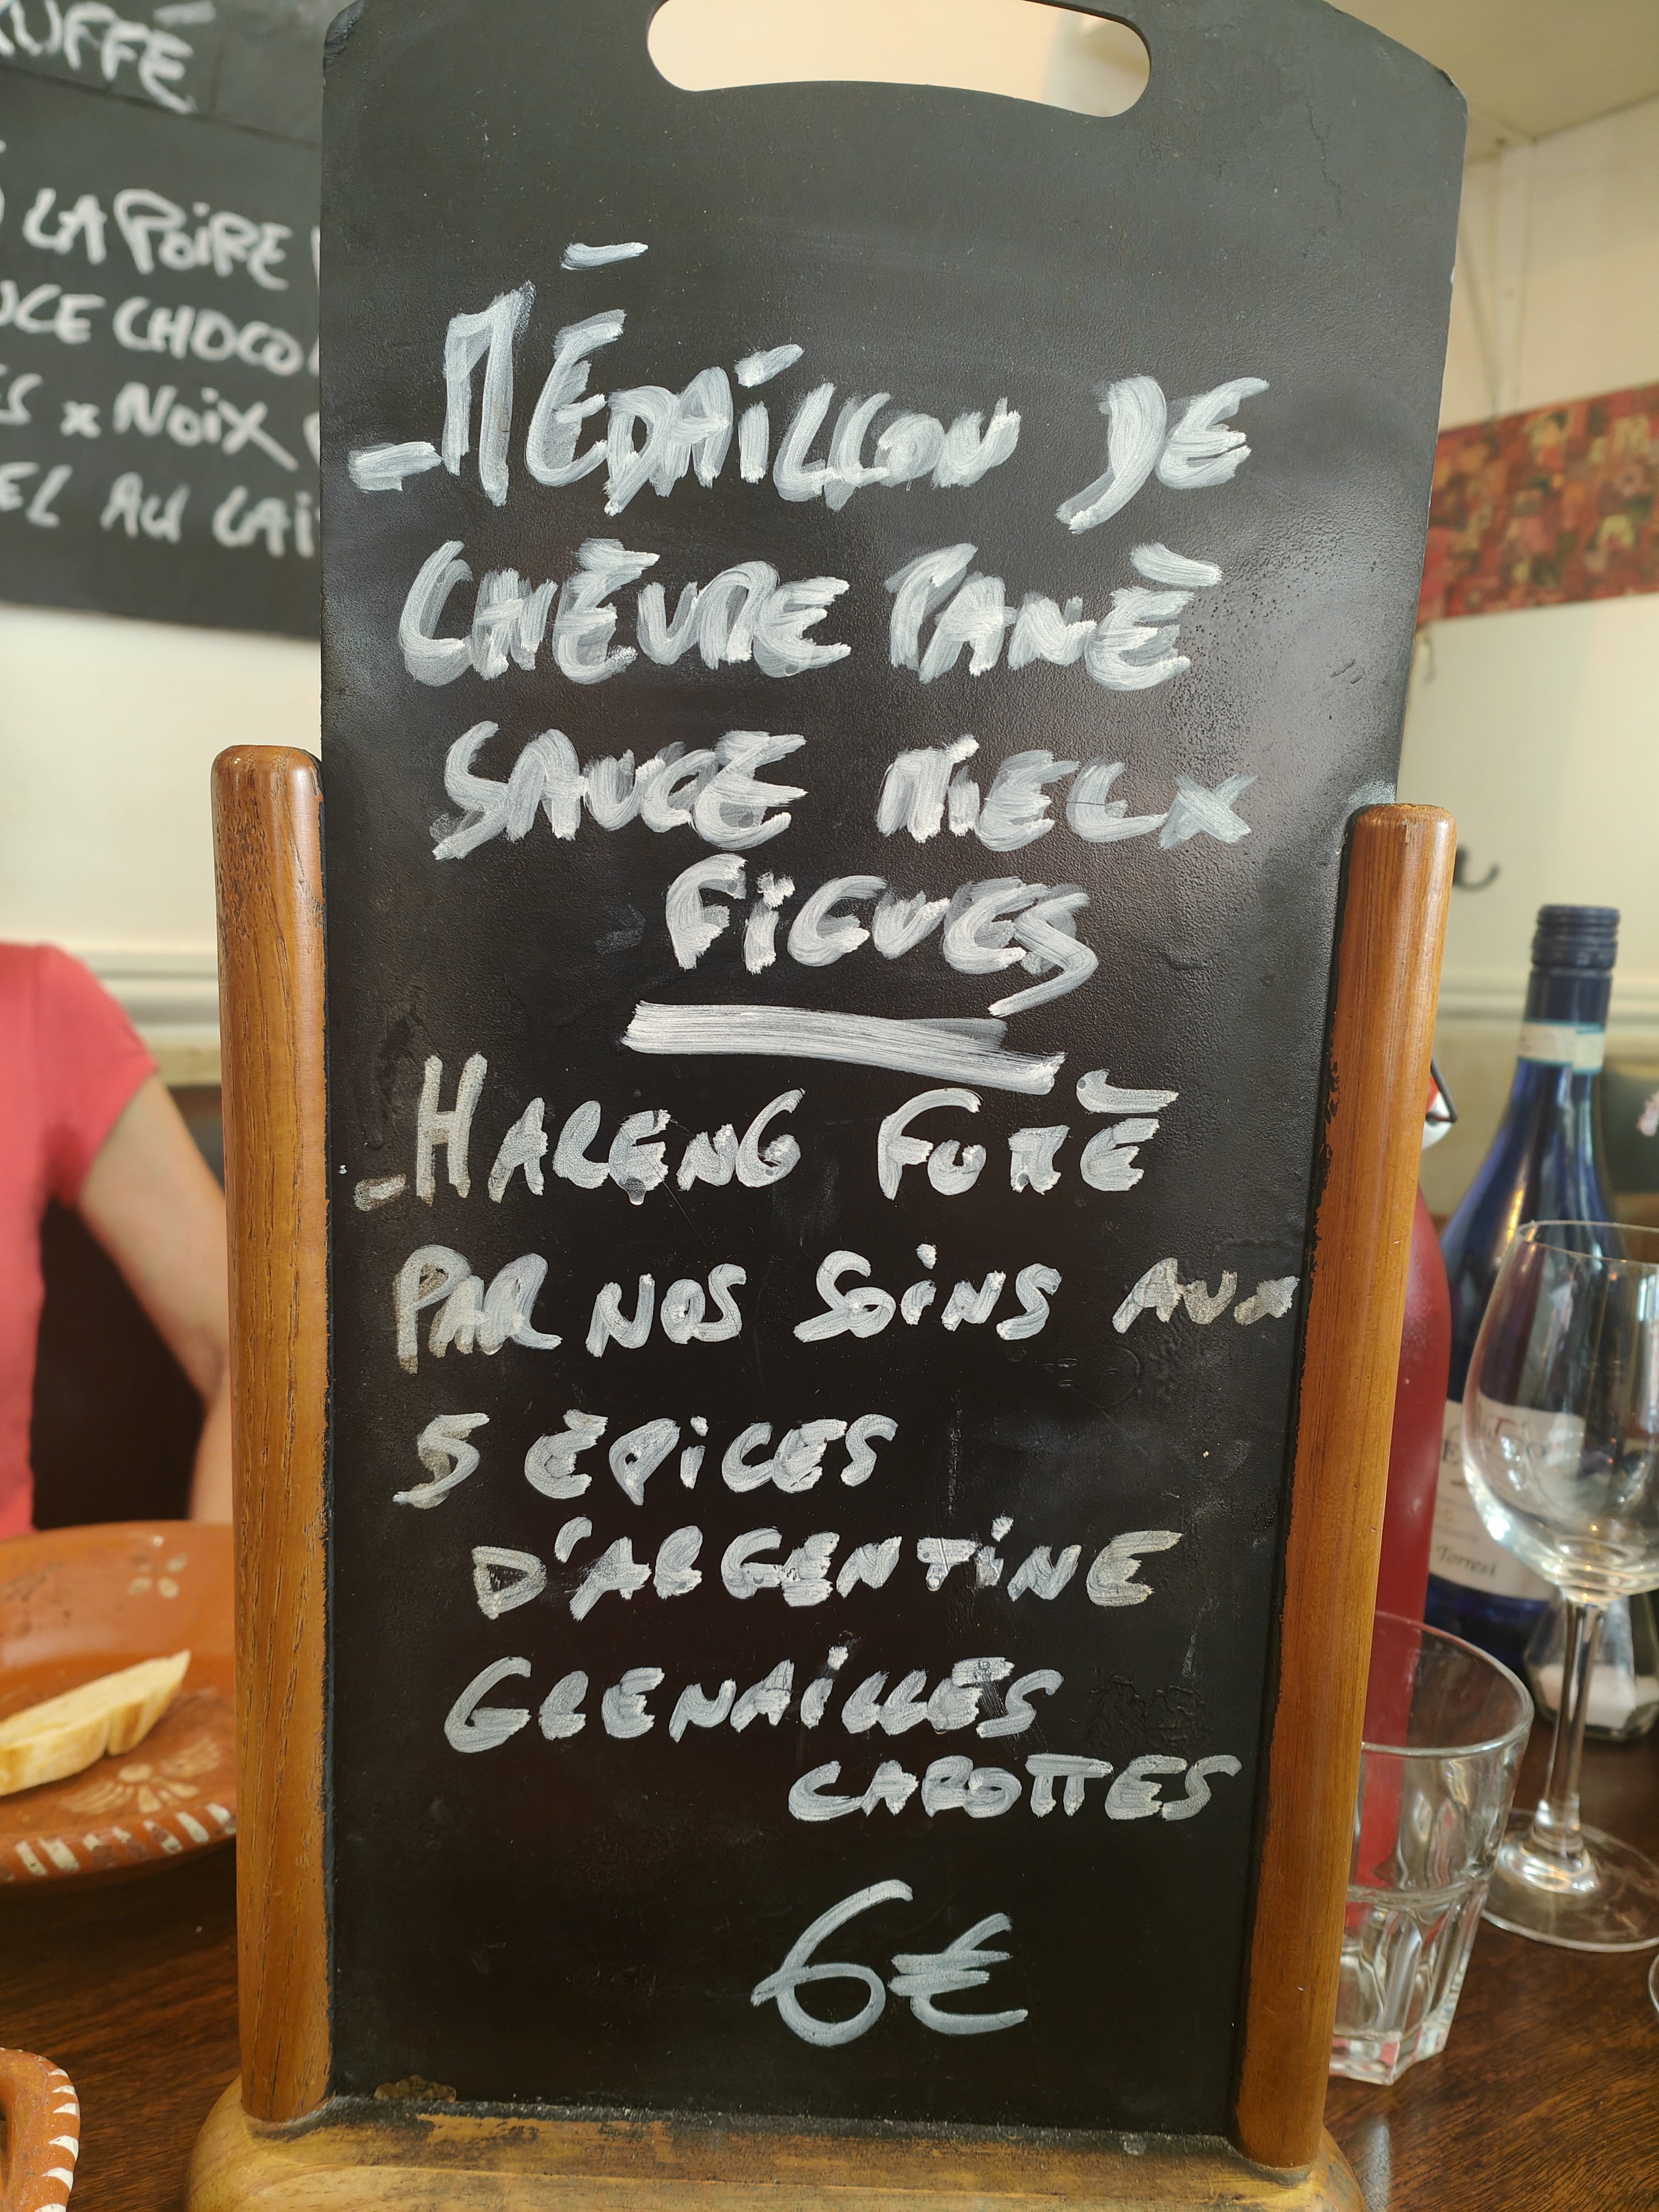 LA POIRE
CHOCO
NOIX
AU LAI
- MÉDAILLON DE
CHÈVRE PANÉ
SAUCE MIEL x
FIGUES
- HARENG FUMÉ
PAR NOS SOINS AUX
5 ÉPICES
D'ARGENTINE
GRENAILLES
CAROTTES
6€
Torresi